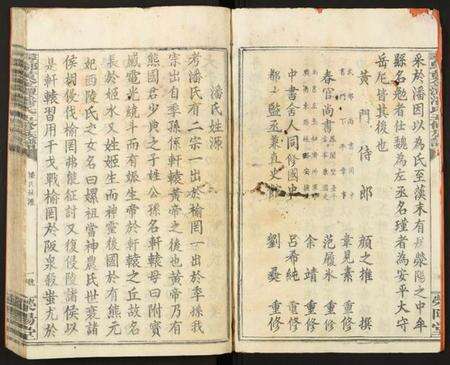 采於潘因以為氏至漢末有居滎陽之中牟
縣名勉者仕魏為左丞名瑾者為安平太守
岳尼皆其後也
黃門侍郎 顏之推 撰
章見素 重修
春官尚書 范履冰 重修
余靖 重修
中書舍人同修國史 呂希純 重修
都監丞兼直史 劉彝 重修
潘氏姓源
考潘氏有二宗一出於榆罔一出於季孫我
宗出自季孫係軒轅黃帝之後也黃帝乃有
熊國君少典之子姓公孫名軒轅母曰附寶
感電光統斗而有娠生帝於軒轅之丘故名
長於姬水又姓姬生而神靈後國於有熊元
妃西陵氏之女名曰嫘祖當神農氏世衰諸
侯相侵伐榆罔弗能征討又復侵陵諸侯以
是軒轅習用干戈戰榆罔於阪泉殺蚩尤於
潘氏姓源
一
滎陽堂
滎陽堂